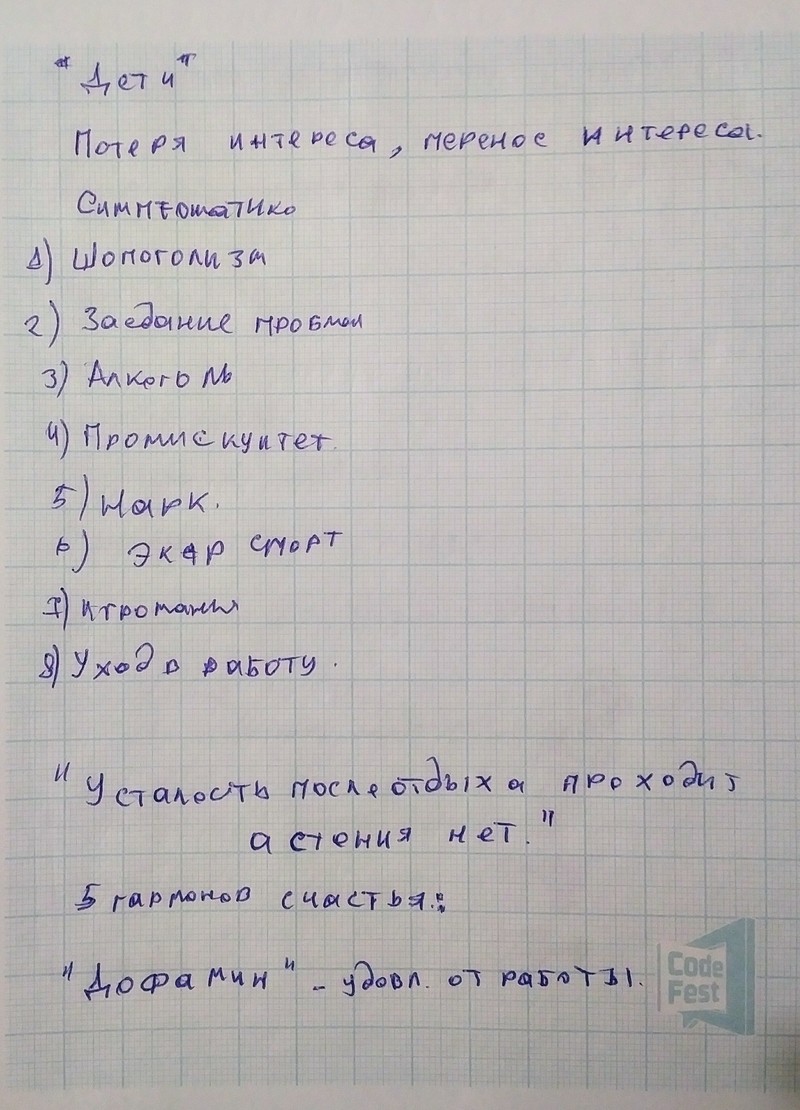 "Дети"
Потеря интереса, перенос интереса.
Симптоматико
1) Шопоголизм
2) Заедание проблем
3) Алкоголь
4) Промискуитет.
5) Нарк.
6) Экстр спорт
7) Игромания
8) Уход в работу.
"Усталость после отдыха проходит
астения нет."
5 гармонов счастья:
"Дофамин" - удовл. от работы.
Code
Fest